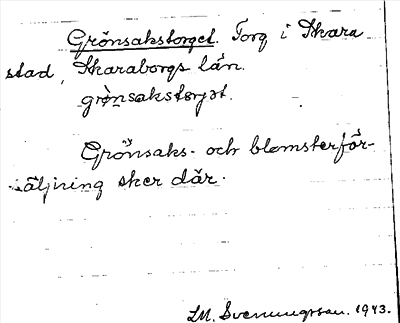 Grönsakstorget. Torg i Skara
stad, Skaraborgs län.
grönsakstorget.
Grönsaks- och blomsterför-
säljning sker där.
LM. Svenungsson. 1943.